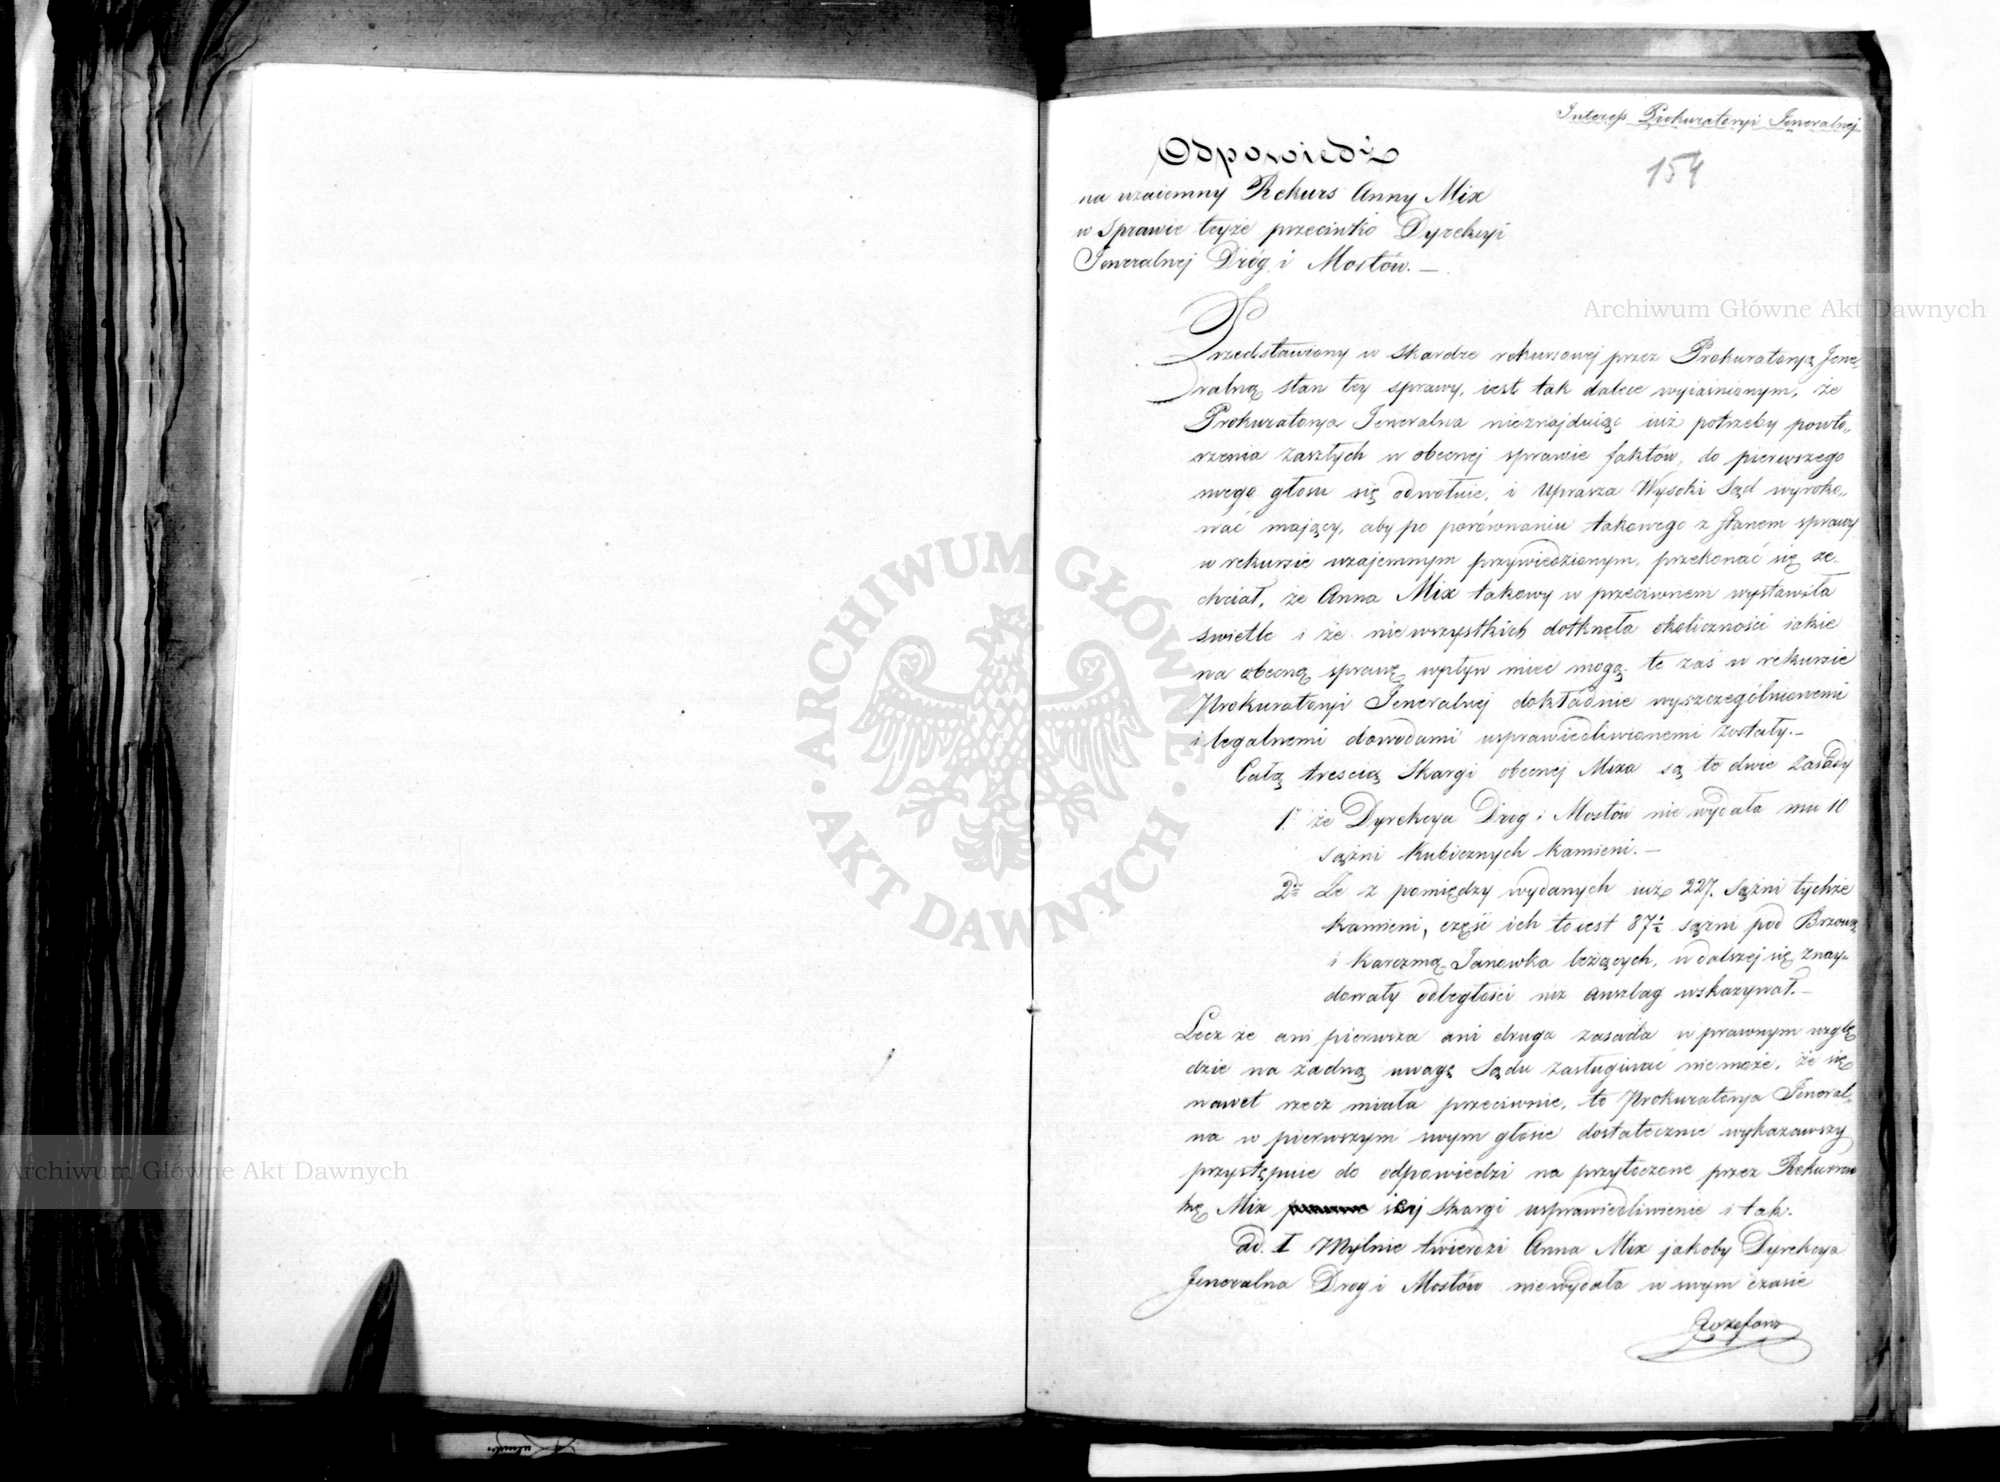 Interess Prokuratoryi Jeneralnej
154
Odpowiedź
na wzaiemny Rekurs Anny Mix
w Sprawie teyże przeciwko Dyrekcyi
Jeneralnej Dróg i Mostów. —
Archiwum Główne Akt Dawnych
Przedstawiony w Skardze rekursowej przez Prokuratoryą Jene„
ralną stan tey sprawy, iest tak dalece wyiaśnionym, że
Prokuratorya Jeneralna nieznajduiąc iuż potrzeby powtó„
rzenia zaszłych w obecnej sprawie faktów, do pierwszego
swego głosu się odwołuie, i uprasza Wysoki Sąd wyroko„
wać mający, aby po porównaniu takowego z stanem sprawy
w rekursie wzajemnym przywiedzionym, przekonać się ze„
chciał, że Anna Mix takowy w przeciwnem wystawiła
świetle i że niewszystkich dotknęła okoliczności iakie
na obecną sprawę wpływ mieć mogą, te zaś w rekursie
Prokuratoryi Jeneralnej dokładnie wyszczególnionemi
i legalnemi dowodami usprawiedliwionemi zostały.—
Całą treścią Skargi obecnej Mixa są te dwie zasady
1. że Dyrekcya Dróg i Mostów nie wydała mu 10
sążni kubicznych kamieni.—
2. Że z pomiędzy wydanych iuż 227. sążni tychże
kamieni, część ich toiest 87½ sążni pod Brzozą
i karczmą Janówka leżących, w dalszej się znay„
dowały odległości niż anszlag wskazywał.—
Lecz że ani pierwsza ani druga zasada w prawnym wzglę
dzie na żadną uwagę Sądu zasługiwać niemoże, że się
nawet rzecz miała przeciwnie, to Prokuratorya Jeneral„
na w pierwszym swym głosie dostatecznie wykazawszy
przystępuie do odpowiedzi na przytoczone przez Rekurent
kę Mix iéj Skargi usprawiedliwienie i tak.
ad. I Mylnie twierdzi Anna Mix jakoby Dyrekcya
Jeneralna Dróg i Mostów niewydała w swym czasie
Archiwum Główne Akt Dawnych
ARCHIWUM GŁÓWNE · AKT DAWNYCH ·